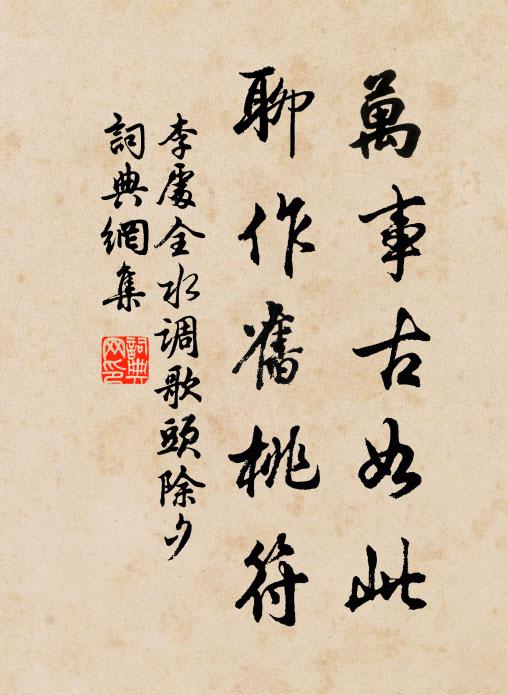 萬事古如此
聊作舊桃符
李處全水调歌頭除夕
詞典網集
詞典網印